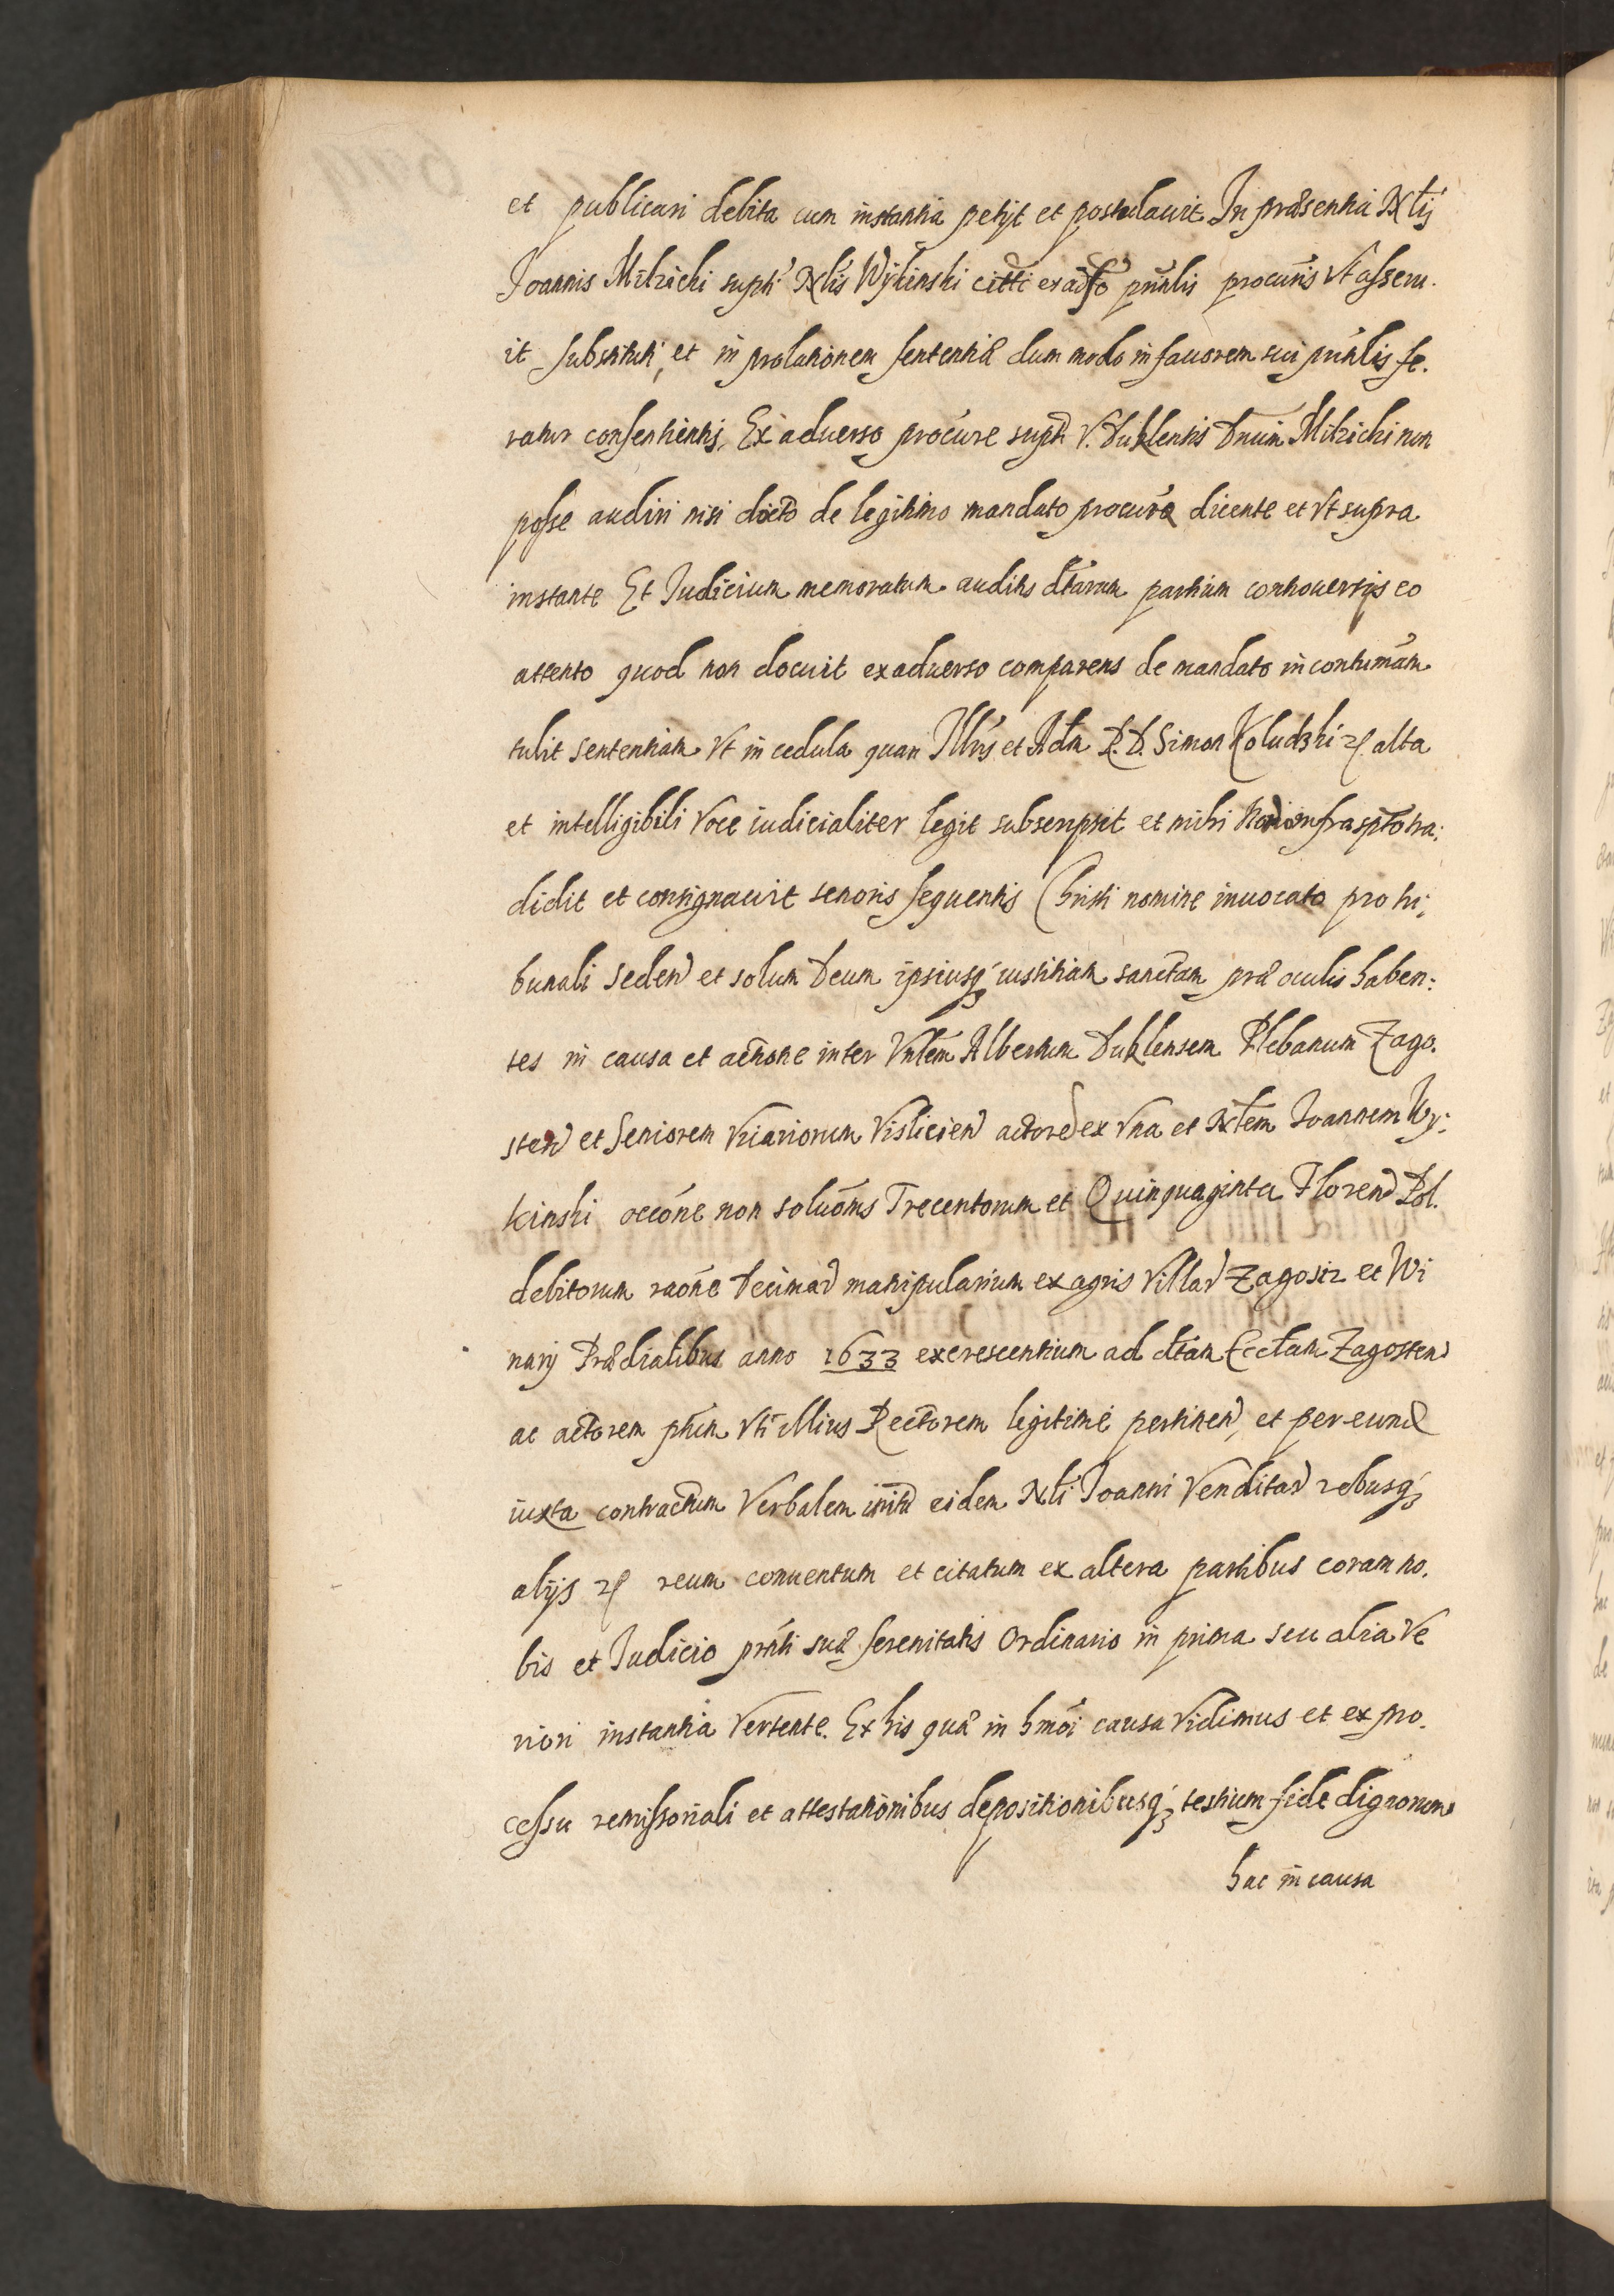 et publicari debita cum instantia petijt et postulauit. In præsentia Nłis
Joannis Milzicki supti Nłis Wÿkinski citti principalis procuris vt asseru.
it substituti, et in prolationem sententiæ dum modo in fauorem sui prinlis fe.
ratur consentientis, Ex aduerso procure supti V. Duklensis Dnum Milzicki non
posse audiri nisi docto de legitimo mandato procuræ dicente et vt supra
instante Et Iudicium memoratum auditis dtarum partium controuersijs eo
attento quod non docuit ex aduerso comparens de mandato in contumam
tulit sententiam vt in cedula quam Illris et Adm R. D. Simon Koludzki alta
et intelligibili voce iudicialiter legit subscripsit et mihi infrasptо tra:
didit et consignauit tenoris sequentis Christi nomine inuocato pro tri:
bunali seden et solum Deum ipsiusq iustitiam sanctam præ oculis haben:
tes in causa et actione inter Vnlem Albertum Duklensem Plebanum Zago.
sten et Seniorem Vicariorum Vislicien actorem ex vna et Nłem Joannem Wy:
kinski occone non solutionis Trecentorum et Quinquaginta Floren Pol.
debitorum raone Decimar manipularium ex agris Villar Zagosiz et Wi
narij Prædialibus anno 1633 excrescentium ad dtam Eccłam Zagosten
ac actorem pntem vti illius Rectorem legitime pertinen, et per eund
iuxta contractum Verbalem initu eidem Nłi Joanni Venditar rebusq
alijs reum conuentum et citatum ex altera partibus coram no.
bis et Iudicio pnti suæ Serenitatis Ordinario in prima seu alia ve
riori instantia vertente. Ex his quæ in hmoi causa vidimus et ex pro.
cessu remissoriali et attestationibus depositionibusq testium fide dignorum
hac in causa